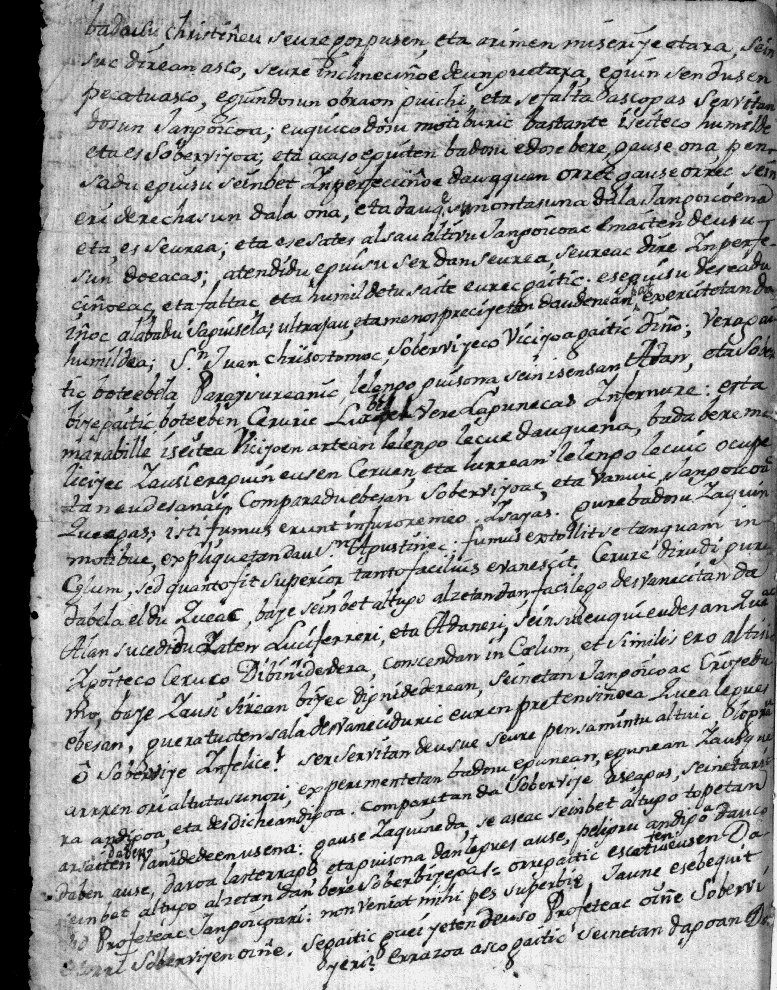 badausu christiñeu seure gorpusen, eta arimen miserijetara, sein
suc direan asco, seure Inclineciñoe deunguetara, eguin sendusen
pecatuasco, egundosun obraon guichi, eta sefalta ascogas servitan
dosun Jangoicoa; euquico dosu motiburic bastante iseiteco humilde
eta es Sobervijoa; eta acaso eguiten badosu edose bere gause ona pen
sadu eguisu seinbet Inperfeciñoe dauquan orrec gause orrec sein
eri derechasun dala ona, eta dauqesun ontasuna dala Jangoicoena
eta es seurea; eta esesates alsau altivu Jangoicoac emaiten deusu
sun doeacas; atendidu eguisu ser dan seurea, seureac dire Inperfe
ciñoeac, eta faltac eta humildetu saite eurec gaitic. eseguisu deseadu
iñoc alabadu saguisela; ultrajau, eta menos precijetan daudenian exercitotan da
humildea; S.n Juan Chrisostomoc sobervijeco Vicijoagaitic diño; Veragai
tic boteebela Paraisureanic lelengo guisona sein isensan Adan, eta Sober
bijegaitic boteeben Ceruric Luzbel Vere Lagunecas Infernure: esta
marabille iseitea Vicijoen artean lelengo lecue dauquena, bada bere ma
licijec Zausi eraguin eusen Ceruen, eta lurrean lelengo lecuic ocupe
tan eudesanai, Comparadu ebesan Sobervijoac, eta Vanuic, Jangoicoac
Queagas; isti fumus erunt in furore meo. Isayas. gure badosu Zaquin
motibue, expliquetandau S.n Agustinec. fumus extollit se tanquam in
Cȩlum, sed quanto fit superior tanto facilius evanescit. Cerure dirudi gure
dabela eldu Queac, baje seinbet altugo alzetan dan, facilego desvanecitan da
Alan sucedidu Zaten Luciferreri, eta Adaneri, seinsuc euqui eudesan Queac
Igoiteco Ceruco Dibinidedera, conscendam in Cœlum, et similis ero altisi
mo, baje Zausi sirean bijec dignidederean, seinetan Jangoicoac Criojebu
ebesan, gueratuten sala desvaneciduric euren pretensiñoea Quea legues
ô Soberbije Infelice! ser servitan deusue seure pensamintu altuic,
arrren ori altutasunori, experimentetan badosu egunean, egunean Zausi
ra andigoa, eta desdicheandigoa. Comparetan da Sobervije aseagas, seinetaric
arsaiten danidedeen usena: gause Zaquineda, se aseac seinbet altugo topetan
daben ause, daroa lasterrago, eta guisona dan legues ause, peligru andigoa dauco
seinbet altugo alzetan dan bere soberbijegas: orregaitic escatuten eusen Da
bid Profeteac Jangoicoari: non veniat mihi pes superbiȩ Jaune esebequit
etorri Sobervijen oiñe. Segaitic gueijeten deuso Profeteac oiñe Sobervi
jeri? Errazoa asco gaitic seinetan dagoan Da